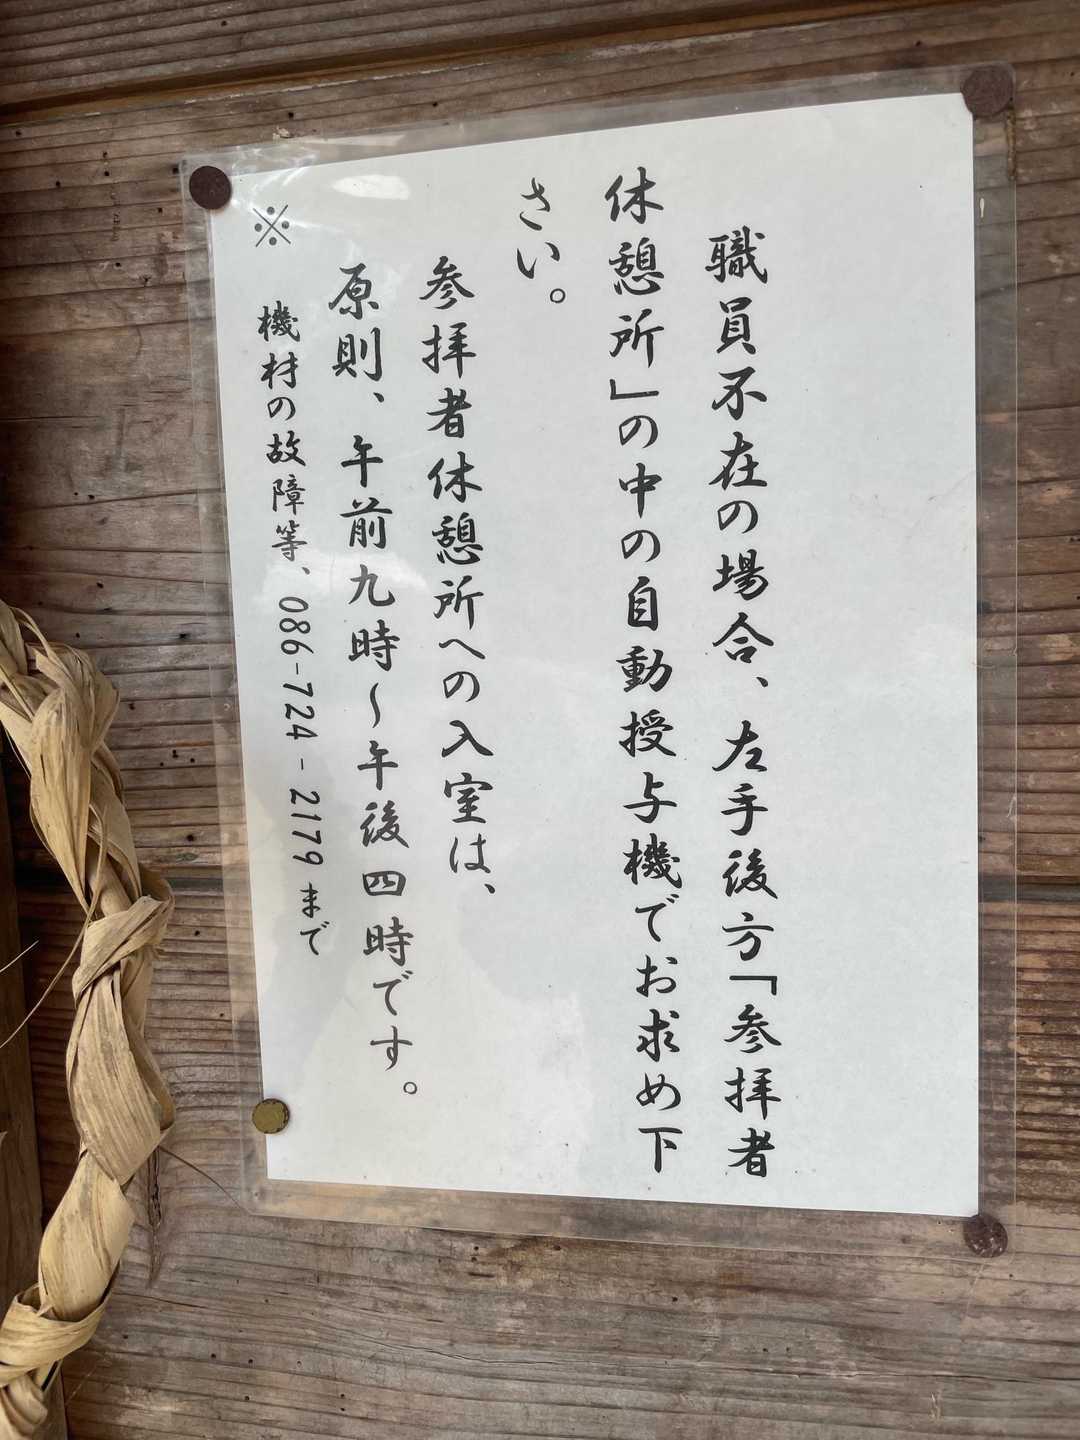 職員不在の場合、左手後方「参拝者
休憩所」の中の自動授与機でお求め下
さい。
参拝者休憩所への入室は、
原則、午前九時～午後四時です。
※ 機材の故障等、086-724-2179まで